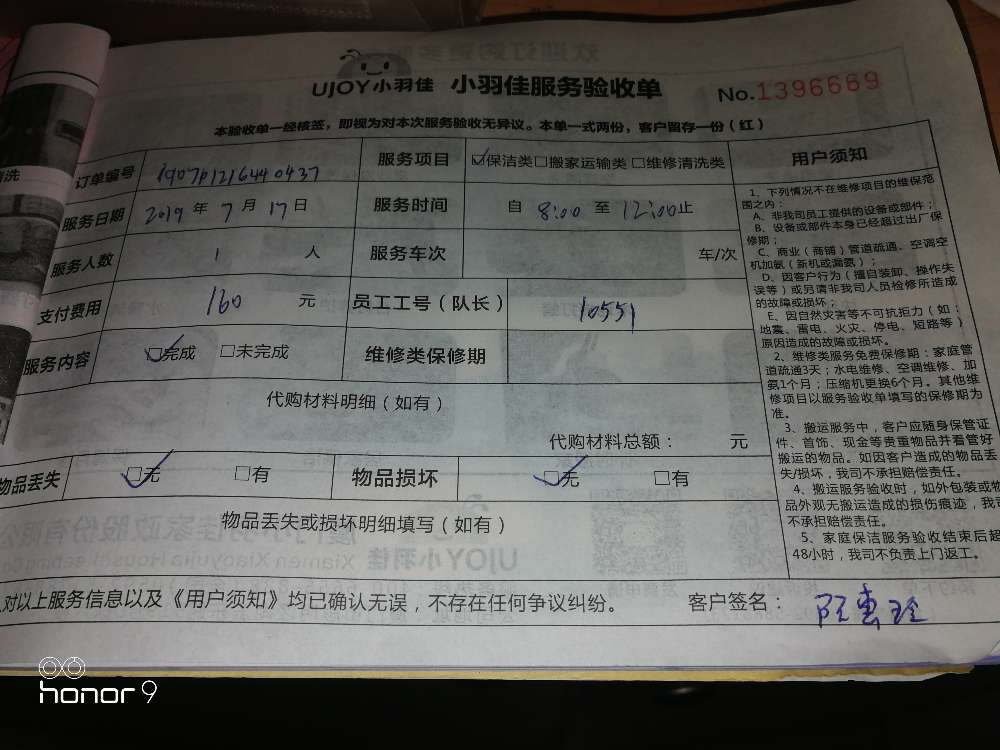 UJOY小羽佳 小羽佳服务验收单 No.1396669
本验收单一经核签，即视为对本次服务验收无异议。本单一式两份，客户留存一份（红）
订单编号 1907121644 0437 服务项目 保洁类 搬家运输类 维修清洗类
服务日期 2019 年 7 月 17 日 服务时间 自 8:00 至 12:00 止
服务人数 1 人 服务车次 车/次
支付费用 160 元 员工工号（队长） 10551
服务内容 完成 未完成 维修类保修期
代购材料明细（如有）
代购材料总额： 元
物品丢失 无 有 物品损坏 无 有
物品丢失或损坏明细填写（如有）
用户须知
1、下列情况不在维修项目的维保范
围之内：
A、非我司员工提供的设备或部件；
B、设备或部件本身已经超过出厂保
修期；
C、商业（商铺）管道疏通、空调空
机加氨（新机或漏氨）；
D、因客户行为（擅自装卸、操作失
误等）或另请非我司人员检修所造成
的故障或损坏；
E、因自然灾害等不可抗拒力（如：
地震、雷电、火灾、停电、短路等）
原因造成的故障或损坏。
2、维修类服务免费保修期：家庭管
道疏通3天；水电维修、空调维修、加
氨1个月；压缩机更换6个月。其他维
修项目以服务验收单填写的保修期为
准。
3、搬运服务中，客户应随身保管证
件、首饰、现金等贵重物品并看管好
搬运的物品。如因客户造成的物品丢
失/损坏，我司不承担赔偿责任。
4、搬运服务验收时，如外包装或物
品外观无搬运造成的损伤痕迹，我司
不承担赔偿责任。
5、家庭保洁服务验收结束后超
48小时，我司不负责上门返工。
对以上服务信息以及《用户须知》均已确认无误，不存在任何争议纠纷。 客户签名：
honor 9